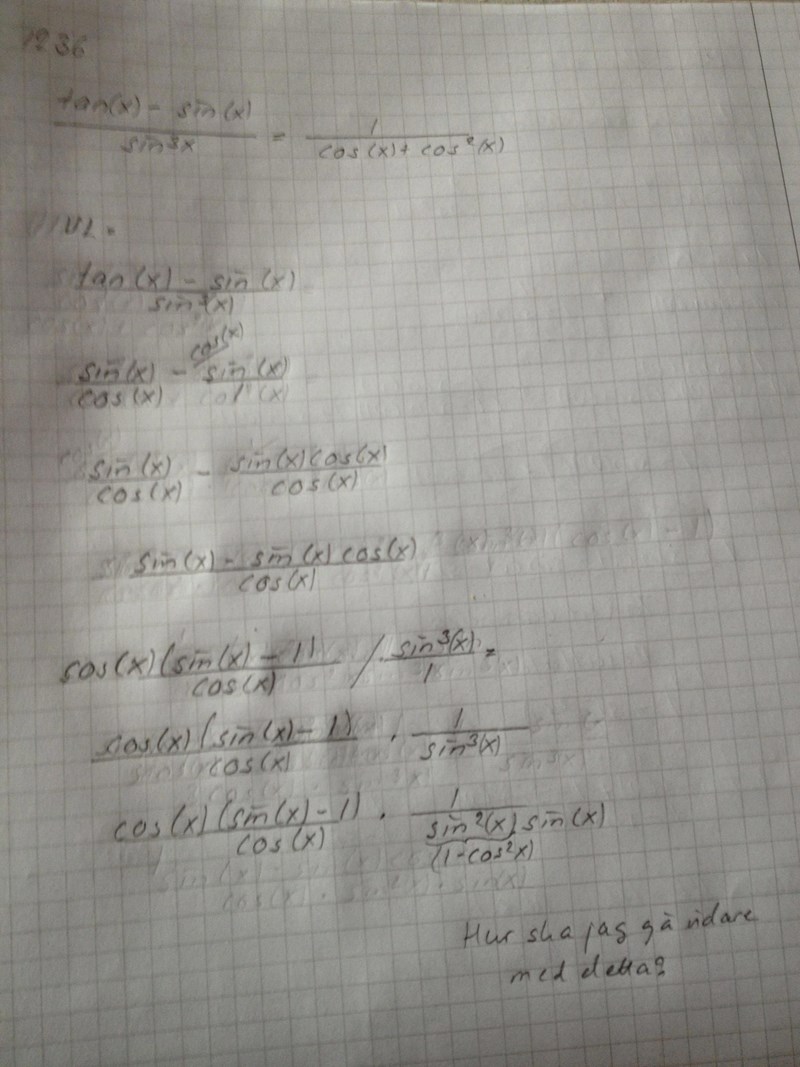 1236
tan(x) - sin(x) / sin³x = 1 / cos(x) + cos²(x)
VL.
tan(x) - sin(x) / sin³(x)
cos(x)
sin(x) / cos(x) - sin(x)
sin(x) / cos(x) - sin(x)cos(x) / cos(x)
sin(x) - sin(x) cos(x) / cos(x)
cos(x)(sin(x) - 1) / cos(x) / sin³(x) / 1 =
cos(x)(sin(x) - 1) / cos(x) · 1 / sin³(x)
cos(x)(sin(x) - 1) / cos(x) · 1 / sin²(x) sin(x)
(1-cos²x)
Hur ska jag gå vidare
med detta?